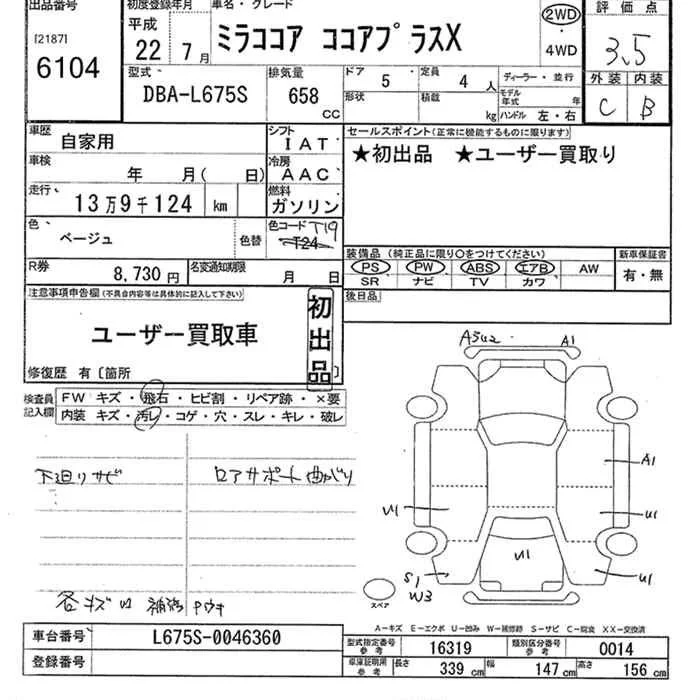 出品番号
[2187]
6104
初度登録年月
平成
22年 7月
車名・グレード
ミラココア ココアプラスX
2WD
・
4WD
評価点
3.5
外装 内装
C B
型式
DBA-L675S
排気量
658 CC
ドア 5・
定員 4人
形状
積載 kg
ディーラー・並行
モデル年式 年
ハンドル 左・右
車歴
自家用
シフト
IAT
車検
年 月( 日)
冷房
AAC
走行
13万9千124 km
燃料
ガソリン
色
ベージュ
色替
色コード T19
T24
R券
8,730円
名変通知期限
月 日
セールスポイント(正常に機能するものに限ります)
★初出品 ★ユーザー買取り
装備品(純正品に限り〇をつけてください)
PS PW ABS エアB AW
SR ナビ TV カワ
新車保証書
有・無
後日品
注意事項申告欄(不具合内容等は具体的に記入して下さい)
ユーザー買取車
初出品
修復歴 有〔箇所 〕
検査員記入欄
FW キズ・飛石・ヒビ割・リペア跡・×要
内装 キズ・汚レ・コゲ・穴・スレ・キレ・破レ
下廻りサビ
ロアサポート曲がり
各キズ凹 補修
A1
A1
U1
U1
U1
S1
W3
U1
スペア
A-キズ E-エクボ U-凹み W-補修跡 S-サビ C-腐食 XX-交換済
車台番号
L675S-0046360
登録番号
型式指定番号 参考
16319
類別区分番号 参考
0014
車庫証明用 参考
長さ 339cm
幅 147cm
高さ 156cm